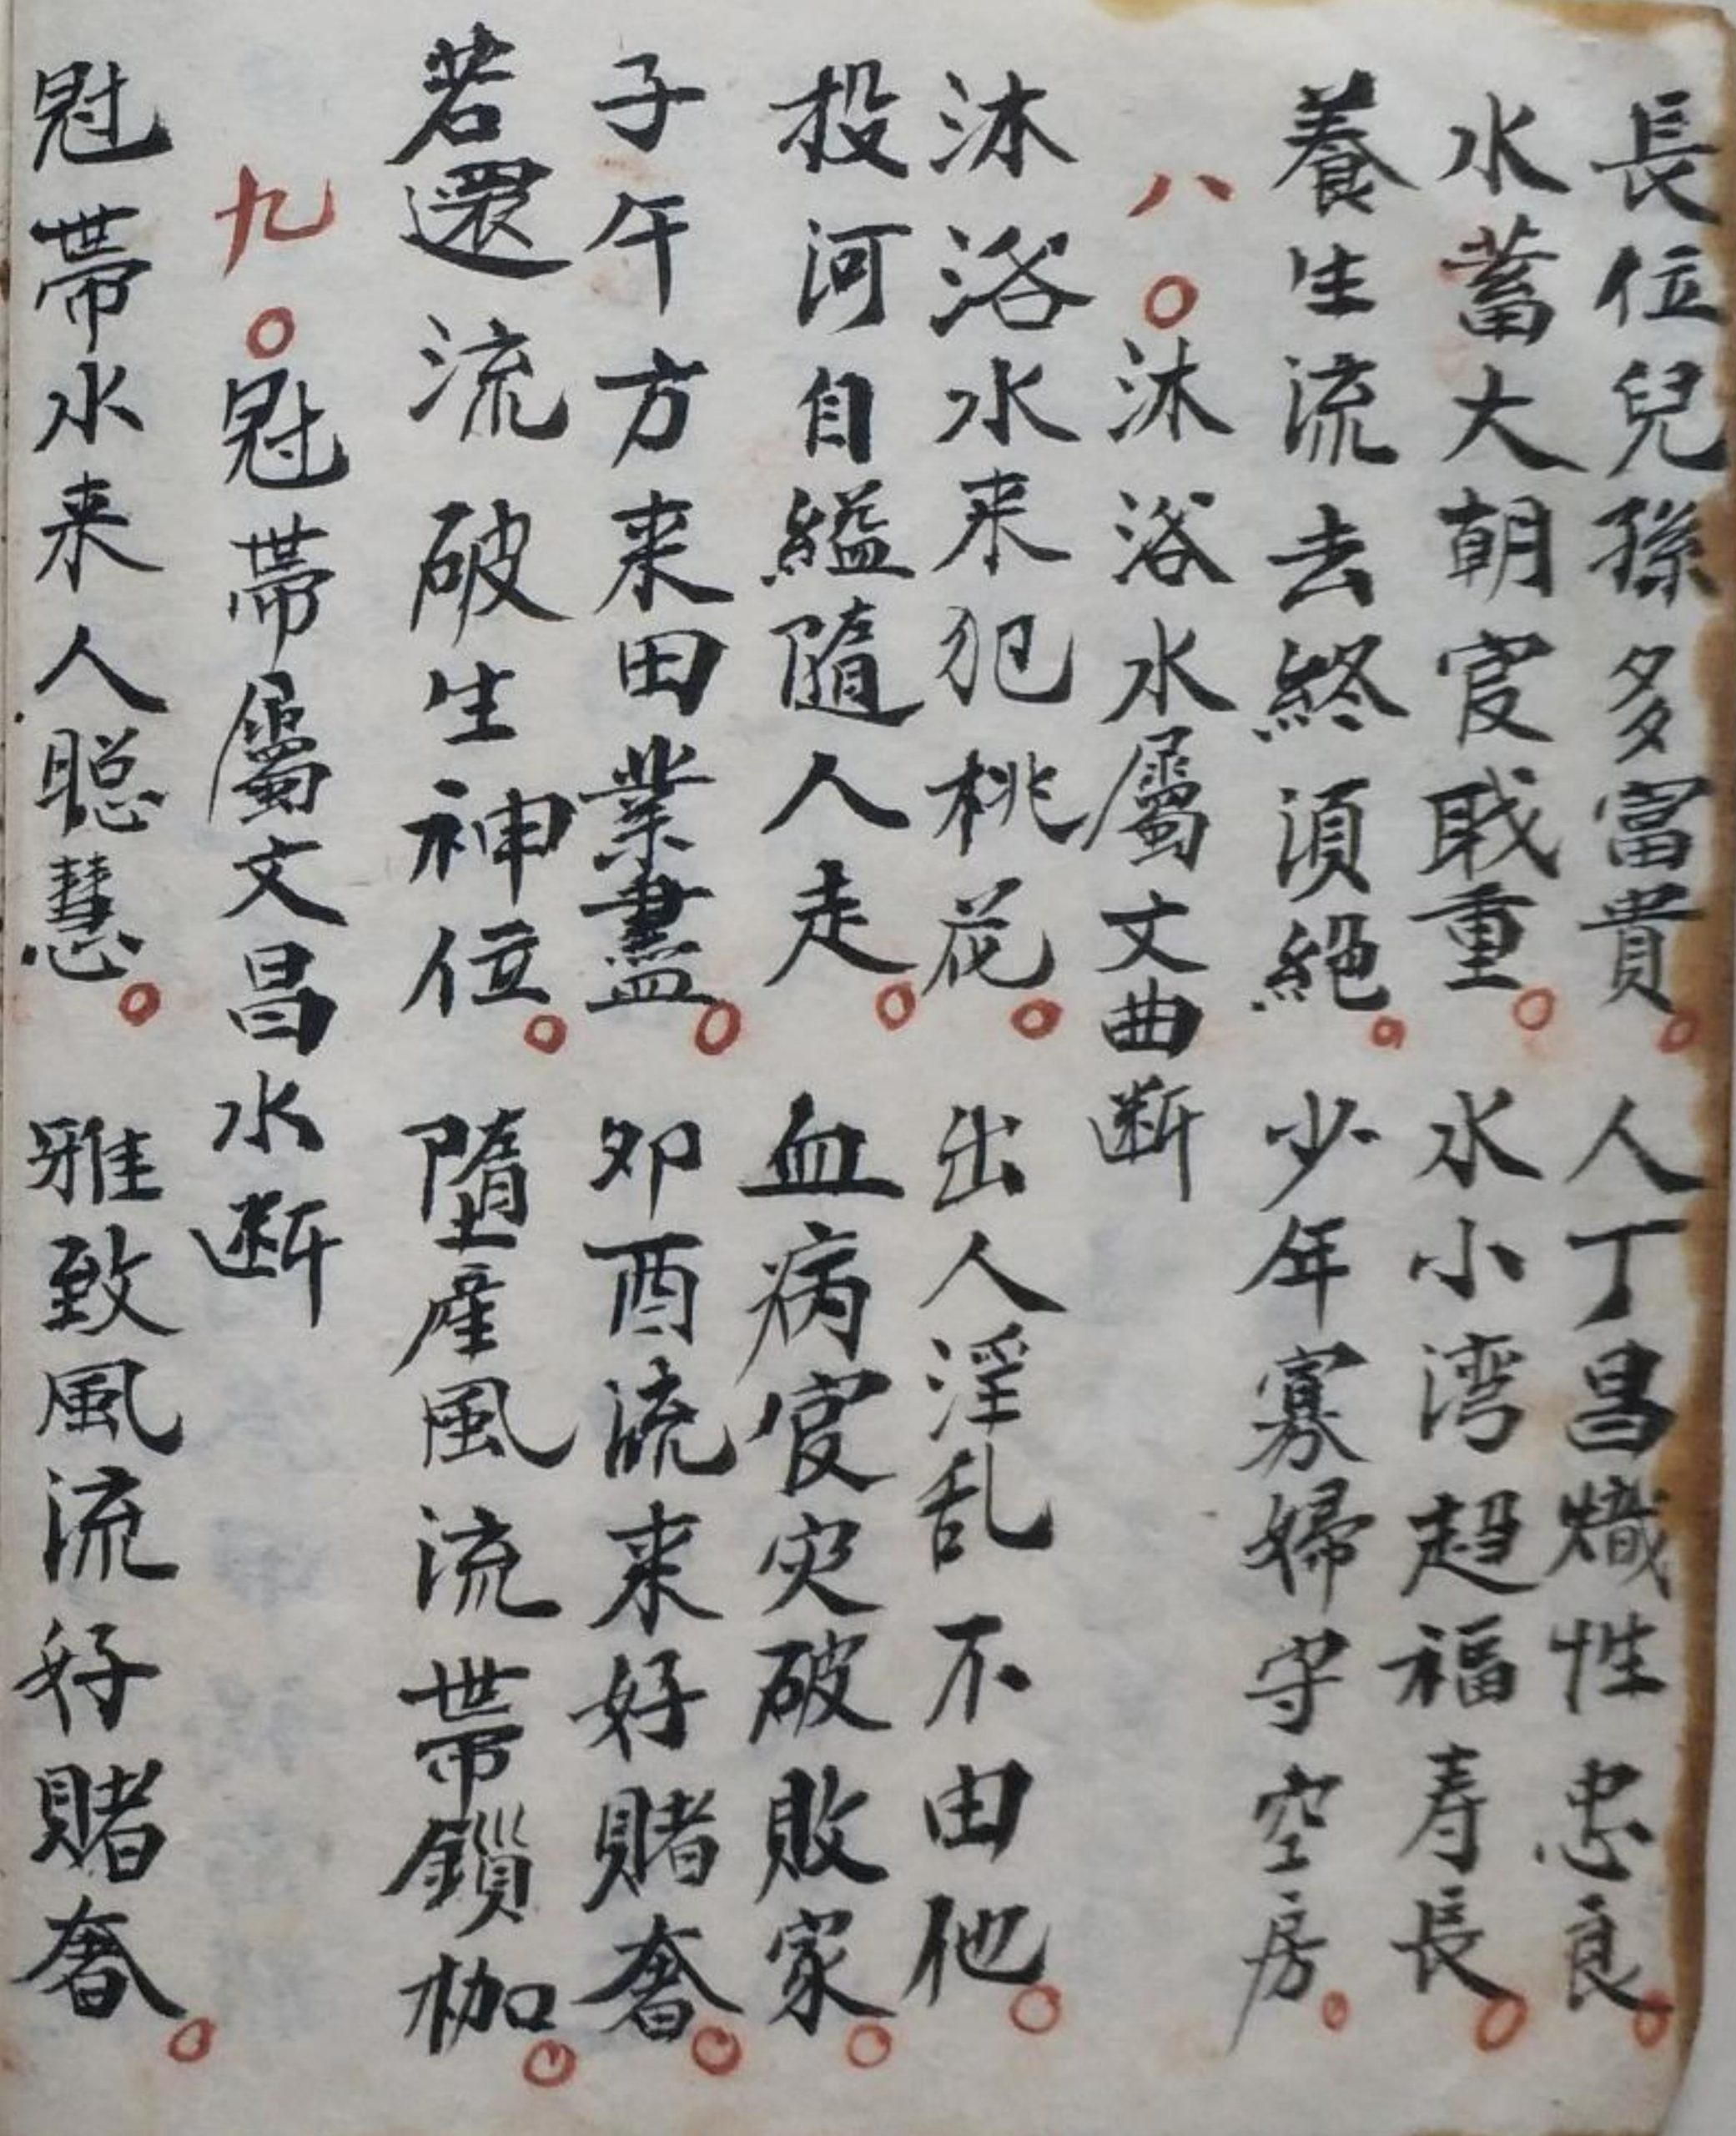 長位兒孫多富貴。人丁昌熾性忠良。
水蓄大朝官職重。水小湾超福寿長。
養生流去終須絕。少年寡婦守空房。
八〇沐浴水屬文曲断
沐浴水来犯桃花。出人淫乱不由他。
投河自縊隨人走。血病官災破敗家。
子午方来田業盡。卯酉流来好賭奢。
若還流破生神位。墮産風流帶鎖枷。
九〇冠帶屬文昌水断
冠帶水来人聪慧。雅致風流好賭奢。